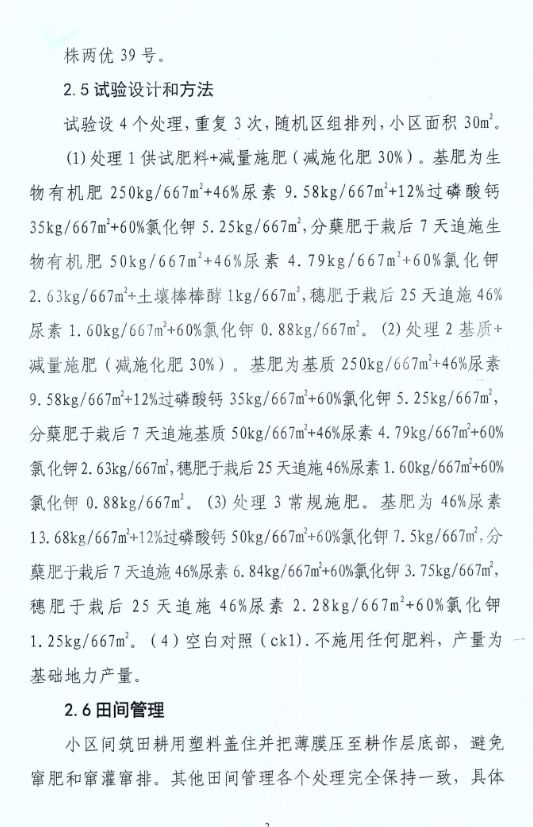 株两优 39 号。
2.5 试验设计和方法
试验设 4 个处理,重复 3 次,随机区组排列,小区面积 30㎡。
(1)处理 1 供试肥料+减量施肥(减施化肥 30%)。基肥为生
物有机肥 250kg/667㎡+46%尿素 9.58kg/667㎡+12%过磷酸钙
35kg/667㎡+60%氯化钾 5.25kg/667㎡,分蘖肥于栽后 7 天追施生
物有机肥 50kg/667㎡+46%尿素 4.79kg/667㎡+60%氯化钾
2.63kg/667㎡+土壤棒棒酵 1kg/667㎡,穗肥于栽后 25 天追施 46%
尿素 1.60kg/667㎡+60%氯化钾 0.88kg/667㎡。(2)处理 2 基质+
减量施肥(减施化肥 30%)。基肥为基质 250kg/667㎡+46%尿素
9.58kg/667㎡+12%过磷酸钙 35kg/667㎡+60%氯化钾 5.25kg/667㎡,
分蘖肥于栽后 7 天追施基质 50kg/667㎡+46%尿素 4.79kg/667㎡+60%
氯化钾 2.63kg/667㎡,穗肥于栽后 25 天追施 46%尿素 1.60kg/667㎡+60%
氯化钾 0.88kg/667㎡。(3)处理 3 常规施肥。基肥为 46%尿素
13.68kg/667㎡+12%过磷酸钙 50kg/667㎡+60%氯化钾 7.5kg/667㎡,分
蘖肥于栽后 7 天追施 46%尿素 6.84kg/667㎡+60%氯化钾 3.75kg/667㎡,
穗肥于栽后 25 天追施 46%尿素 2.28kg/667㎡+60%氯化钾
1.25kg/667㎡。(4)空白对照(ck1).不施用任何肥料,产量为
基础地力产量。
2.6 田间管理
小区间筑田耕用塑料盖住并把薄膜压至耕作层底部,避免
窜肥和窜灌窜排。其他田间管理各个处理完全保持一致,具体